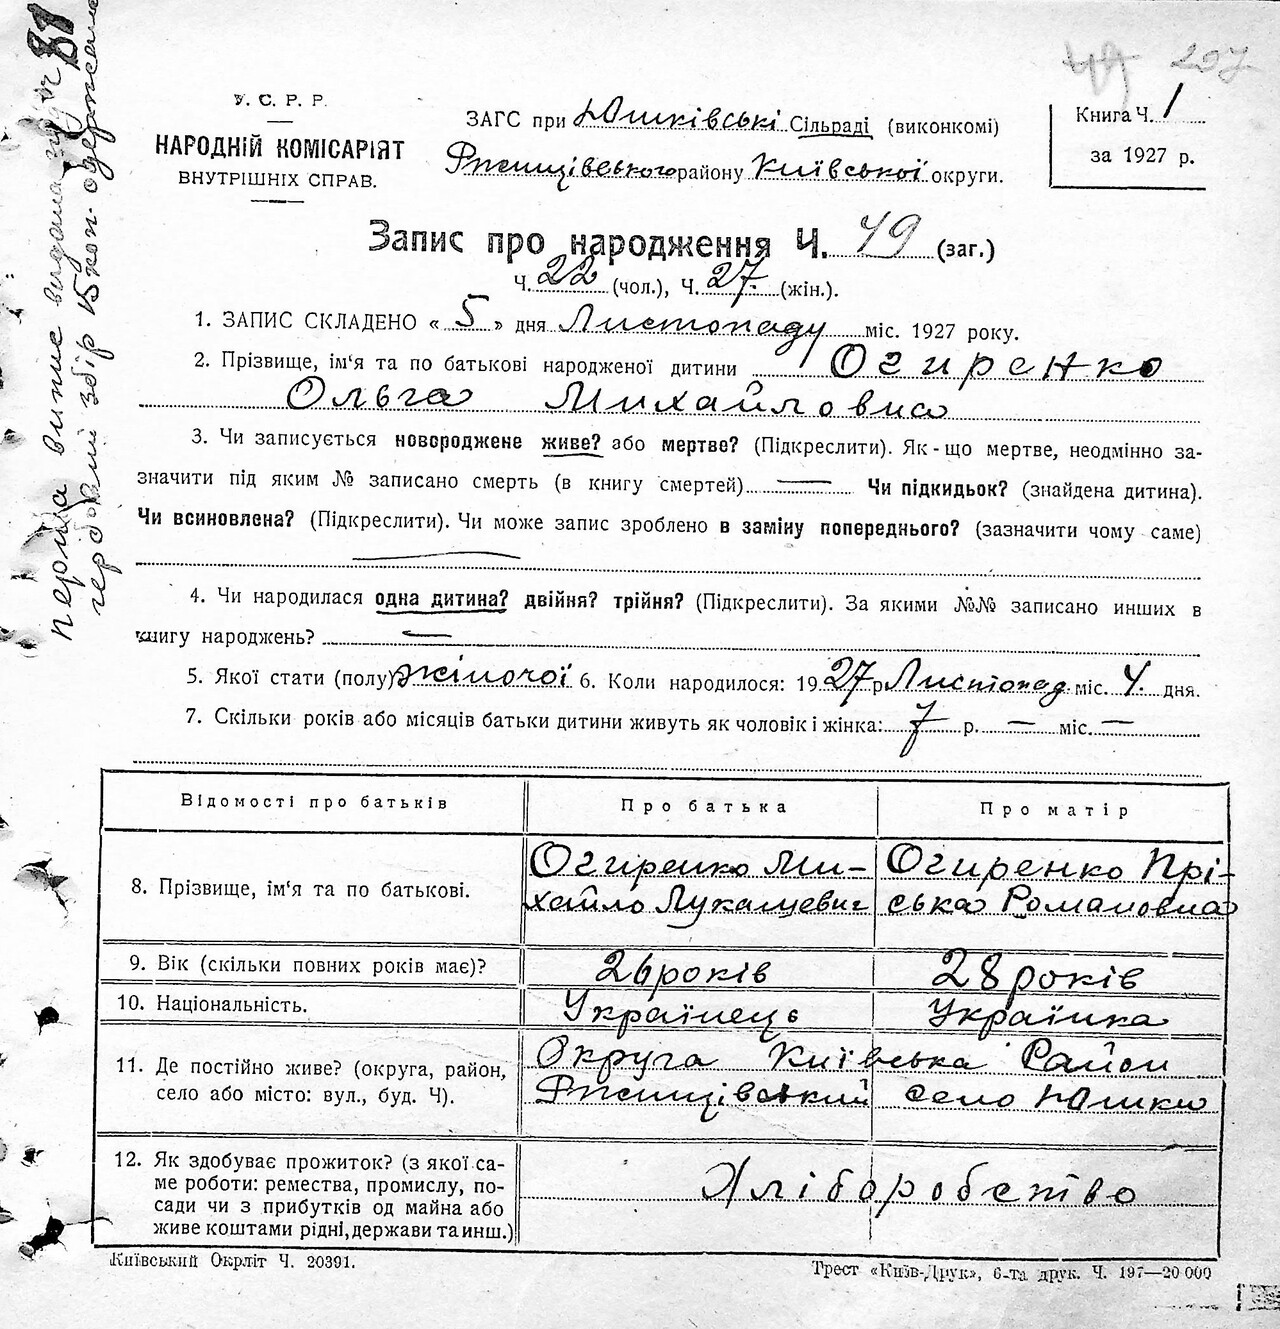 У. С. Р. Р.
НАРОДНІЙ КОМІСАРІЯТ
ВНУТРІШНІХ СПРАВ.
ЗАГС при Юшківські Сільраді (виконкомі)
Ржищівського району Київської округи.
207
Книга Ч. 1
за 1927 р.
Запис про народження Ч. 49 (заг.)
Ч. 22 (чол.), Ч. 27. (жін.).
1. ЗАПИС СКЛАДЕНО « 5 » дня Листопаду міс. 1927 року.
2. Прізвище, ім'я та по батькові народженої дитини Огиренко
Ольга Михайловна
3. Чи записується новороджене живе? або мертве? (Підкреслити). Як-що мертве, неодмінно за-
значити під яким № записано смерть (в книгу смертей) — Чи підкидьок? (знайдена дитина).
Чи всиновлена? (Підкреслити). Чи може запис зроблено в заміну попереднього? (зазначити чому саме)
—
4. Чи народилася одна дитина? двійня? трійня? (Підкреслити). За якими №№ записано инших в
книгу народжень? —
5. Якої стати (полу) жіночої 6. Коли народилося: 1927 р Листопад міс. 4. дня.
7. Скільки років або місяців батьки дитини живуть як чоловік і жінка: 7 р. — міс. —
Відомості про батьків Про батька Про матір
8. Прізвище, ім'я та по батькові.
Огиренко Ми-
хайло Лукашевич
Огиренко Прі-
ська Романовна
9. Вік (скільки повних років має)? 26 років 28 років
10. Національність. Українець Українка
11. Де постійно живе? (округа, район,
село або місто: вул., буд. Ч).
Округа Київська Район
Ржищівський село Юшки
12. Як здобуває прожиток? (з якої са-
ме роботи: ремества, промислу, по-
сади чи з прибутків од майна або
живе коштами рідні, держави та инш.)
Хліборобство
Київський Окрліт Ч. 20391.
Трест «Київ-Друк», 6-та друк. Ч. 197—20 000
Перша випис видана
гербовий збір 15 коп. одержано